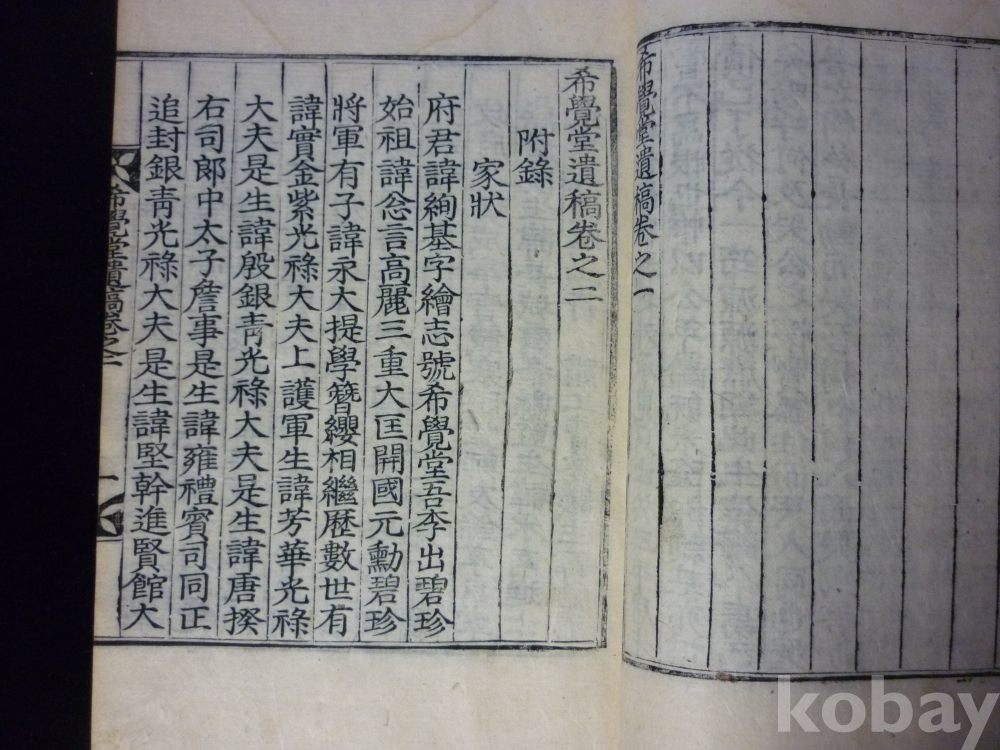 希覺堂遺稿卷之一
希覺堂遺稿卷之二
附錄
家狀
府君諱絢基字繪志號希覺堂吾李出碧珍
始祖諱忩言高麗三重大匡開國元勳碧珍
將軍有子諱永大提學簪纓相繼歷數世有
諱實金紫光祿大夫上護軍生諱芳華光祿
大夫是生諱殷銀青光祿大夫是生諱唐揆
右司郞中太子詹事是生諱雍禮賓司同正
追封銀靑光祿大夫是生諱堅幹進賢館大
希覺堂遺稿卷之二
一
kobay